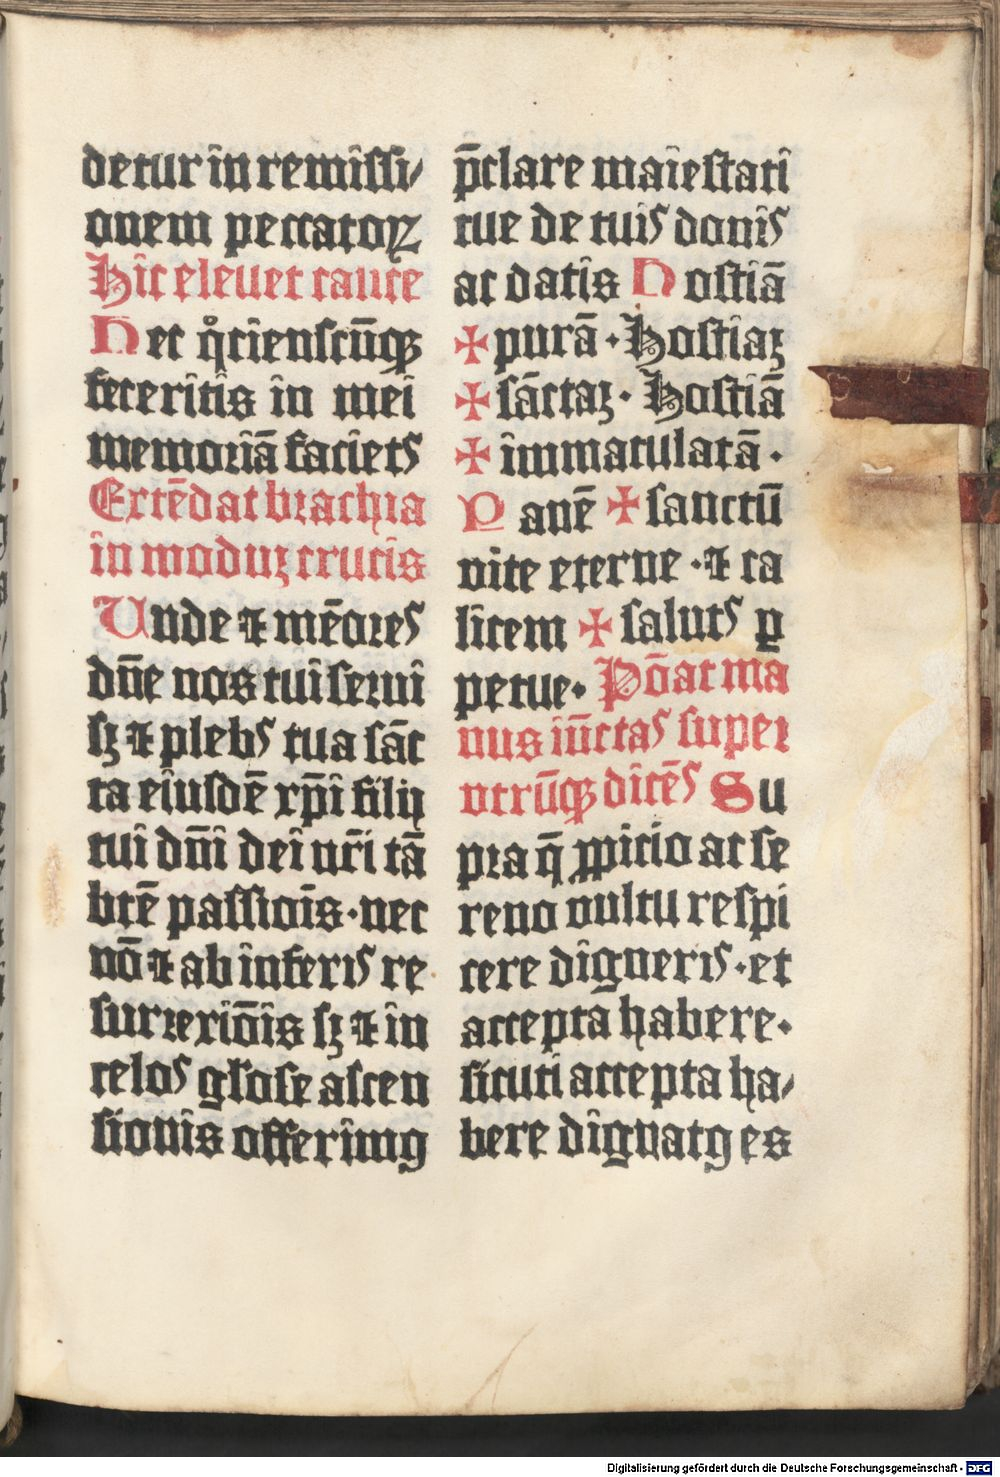 detur in remissi⸗
onem peccatoꝝ
Hic eleuet caute
Hec q̊ciēscūqꝫ
feceritis in mei
memoriā faciets
Extēdat brachia
in moduꝫ crucis
Unde ⁊ mēores
dn̄e nos tui serui
sꝫ ⁊ plebs tua sāc
ta eiusdē xp̄i filij
tui dn̄i dei nr̄i tā
btē passiōis · nec
nō ⁊ ab inferis re
surrexiōis sꝫ ⁊ in
celos gl̄ose ascen
sionis offerimꝰ
p̄clare maiestati
tue de tuis donis
ac datis Hostiā
✠ purā · Hostiaꝫ
✠ sāctaꝫ · Hostiā
✠ immaculatā ·
Panē ✠ sanctū
vite eterne · ⁊ ca
licem ✠ saluts ꝑ
petue · Pōat ma
nus iūctas super
vtrūqꝫ dicēs Su
pra q̄ ꝓpicio ac se
reno vultu respi
cere digneris · et
acceptā habere ·
sicuti accepta ha⸗
bere dignatꝰ es
Digitalisierung gefördert durch die Deutsche Forschungsgemeinschaft - DFG